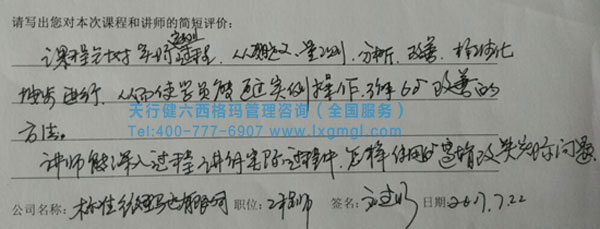 请写出您对本次课程和讲师的简短评价:
课程针对实际过程,从定义、量测、分析、改善、标准化
地步进行,从而使学员能通过实例操作,了解6σ改善的
方法。
天行健六西格玛管理咨询(全国服务)
Tel:400-777-6907 www.lxgmgl.com
讲师能深入过程,讲解实际过程中,怎样使用 改 实际问题
公司名称: 标准 有限公司 职位:工程师 签名: 日期2017.7.22